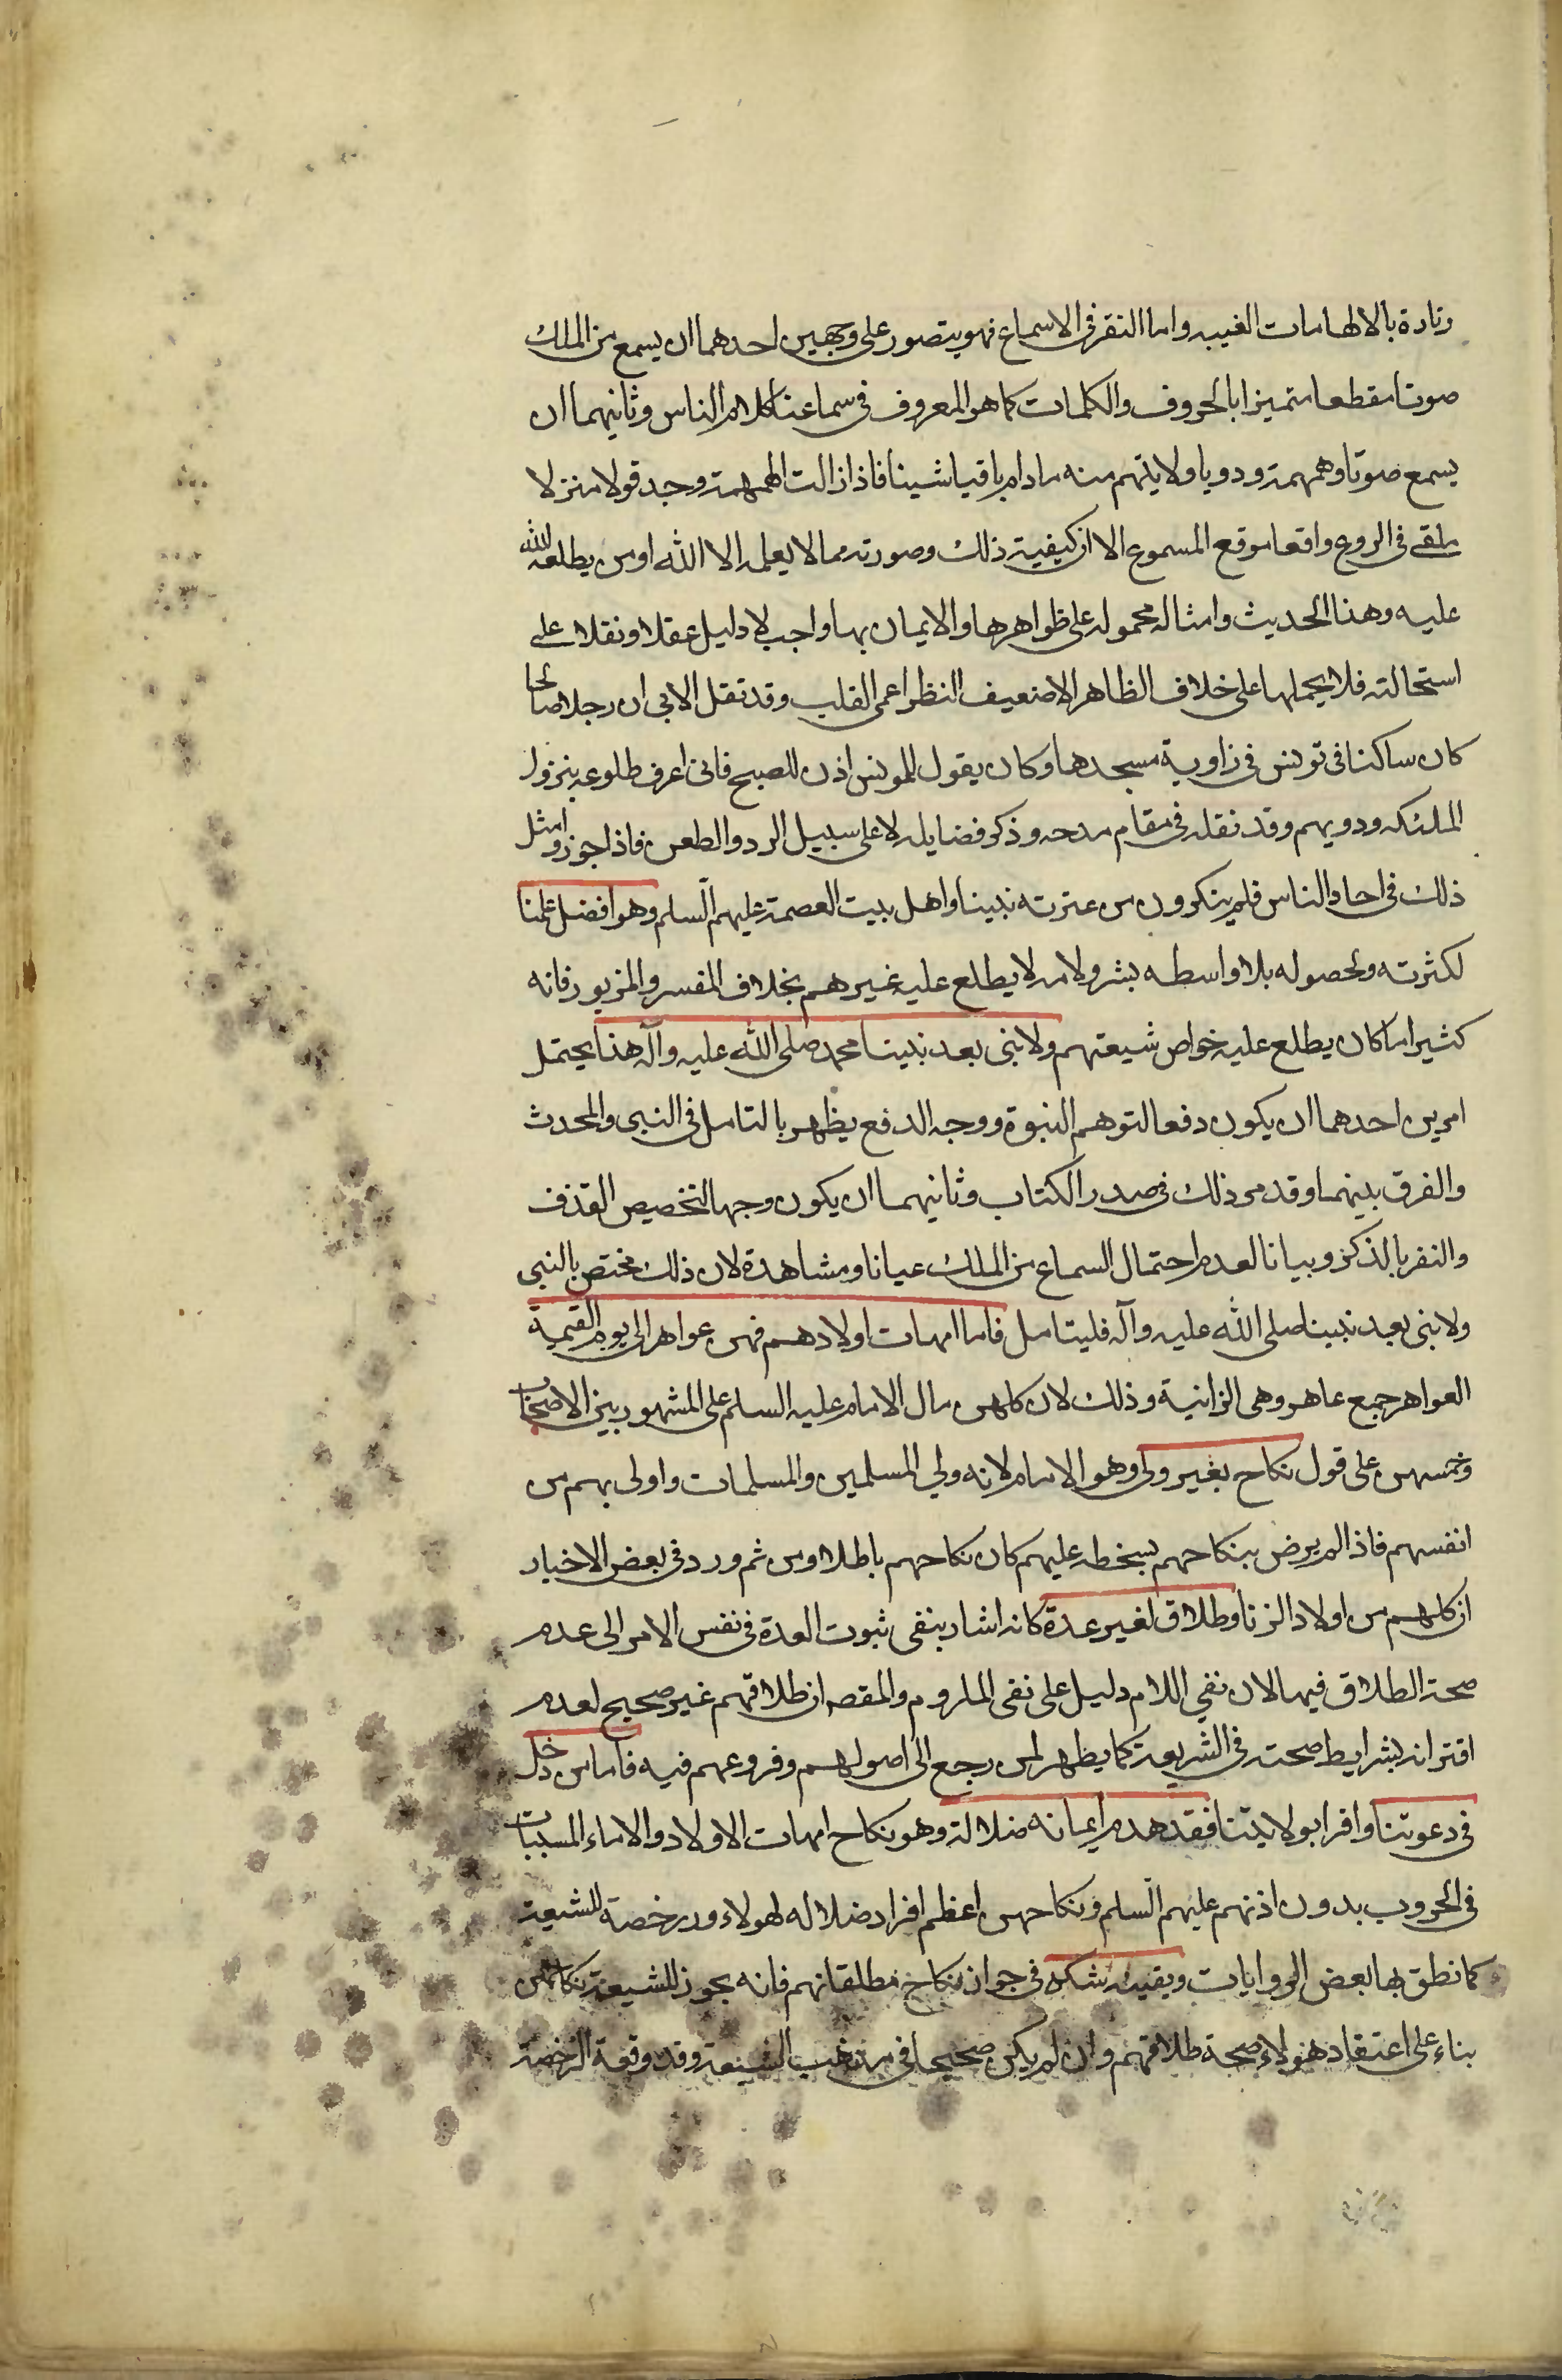 وتارة بالالهامات الغيبه واما النقر فى الاسماع فهو يتصور على وجهين احدهما ان يسمع من الملك
صوتا مقطعا متميزا بالحروف والكلمات كما هو المعروف فى سماعنا كلام الناس وثانيهما ان
يسمع صوتا وهمهمة ودويا ولا يفهم منه مادام باقيا شيئا فاذا زالت الهمهمة وجد قولا منزلا
ملقى فى الروع واقعا موقع المسموع الا ان كيفية ذلك وصورته مما لا يعلمه الا الله او من يطلعه الله
عليه وهذا الحديث وامثاله محموله على ظواهرها والايمان بها واجب لا دليل عقلا ونقلا على
استحالته فلا يحملها على خلاف الظاهر الا ضعيف النظر اعمى القلب وقد نقل الابى ان رجلا صالحا
كان ساكنا فى تونس فى زاوية مسجدها وكان يقول للمونس اذن للصبح فانى اعرف طلوعه بنزول
الملئكه ودويهم وقد نقله فى مقام مدحه وذكر فضايله لا على سبيل الرد والطعن فاذا جوزوا مثل
ذلك فى احاد الناس فلم ينكرون من عترته نبينا واهل بيت العصمة عليهم السلم وهو افضل علمنا
لكثرته ولحصوله بلا واسطه بشر ولامه لا يطلع عليه غيرهم بخلاف المفسر والمزبور فانه
كثيرا ما كان يطلع عليه خواص شيعتهم ولا نبى بعد نبينا محمد صلى الله عليه وآله هذا يحتمل
امرين احدهما ان يكون دفعا لتوهم النبوة ووجه الدفع يظهر بالتامل فى النبى والمحدث
والفرق بينهما وقد مر ذلك فى صدر الكتاب وثانيهما ان يكون وجها لتخصيص القذف
والنقر بالذكر وبيانا لعدم احتمال السماع من الملك عيانا ومشاهدة لان ذلك مختص بالنبى
ولا نبى بعد نبينا صلى الله عليه وآله فليتامل فاما امهات اولادهم فهن عواهر الى يوم القيمة
العواهر جمع عاهر وهى الزانية وذلك لان كلهن مال الامام عليه السلم على المشهور بين الاصحاب
وخمسهن على قول نكاح بغير ولى وهو الامام لانه ولي المسلمين والمسلمات واولى بهم من
انفسهم فاذا لم يرض بنكاحهم بسخطه عليهم كان نكاحهم باطلا ومن ثم ورد فى بعض الاخبار
ان كلهم من اولاد الزنا وطلاق لغير عدة كانه اشار بنفى ثبوت العدة فى نفس الامر الى عدم
صحة الطلاق فيها لان نفي اللام دليل على نفى الملروم والمقصه ان طلاقهم غير صحيح لعدم
اقترانه بشرايط صحته فى الشريعة كما يظهر لمن رجع الى اصولهم وفروعهم فيه فاما من دخل
فى دعوتنا واقر ابولايتنا فقد هدم ايمانه ضلالة وهو نكاح امهات الاولاد والاماء المسبيات
فى الحروب بدون اذنهم عليهم السلم ونكاحهن اعظم افراد ضلاله لهولاء ورد رخصة للشيعة
كما نطق بها بعض الروايات ويقينه شكه فى جواز نكاح مطلقاتهم فانه يجوز للشيعة نكاحهن
بناء على اعتقاد هولاء صحة طلاقهم وان لم يكن صحيحا فى مذهب الشيعة وقد وقعة الرخصة